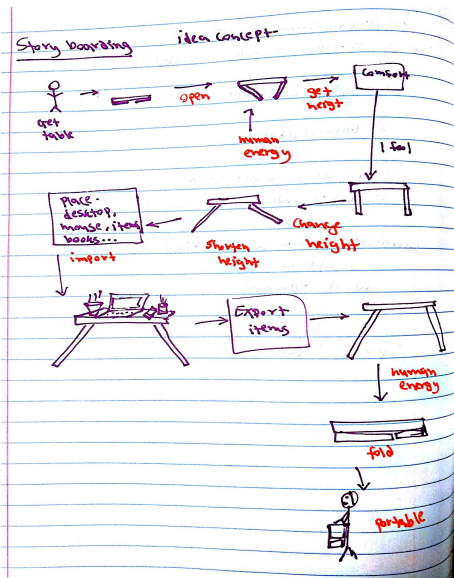 Story boarding
idea concept-
Get
table
open
human
energy
get
height
Comfort
I feel
Change
height
Shorten
height
Place.
desktop,
mouse, items
books...
import
Export
items
human
energy
fold
portable